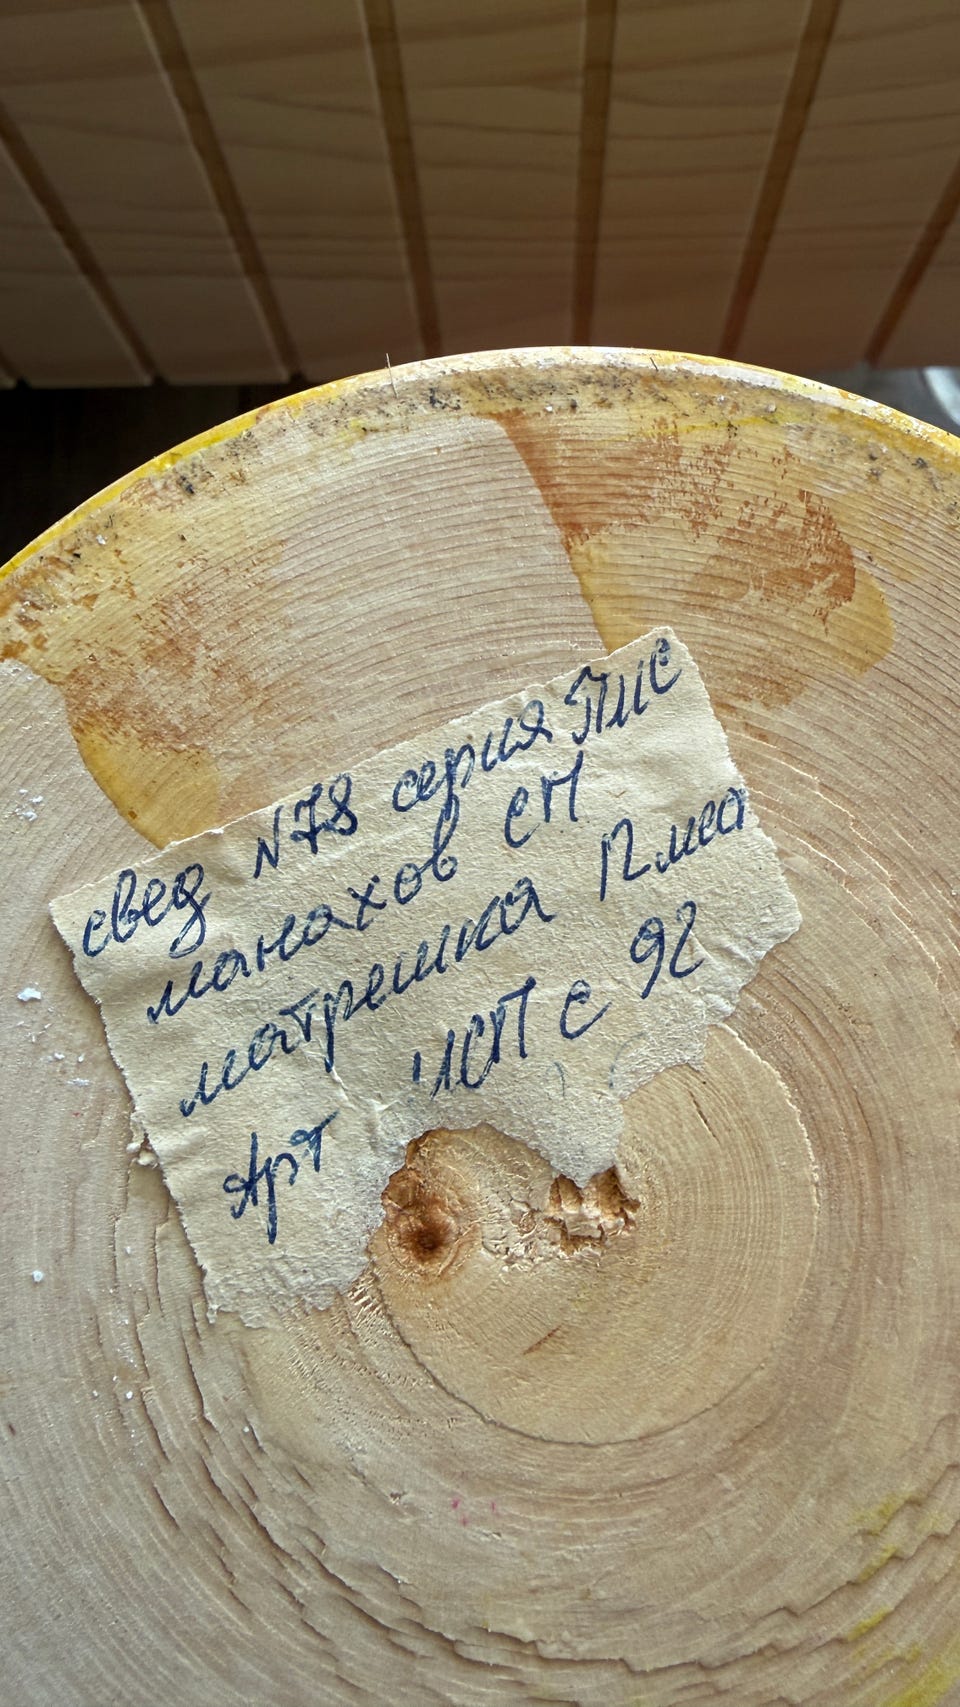 свед N78 серия ПИС
манахов СП
матрешка 12 мес
Арт ИСП с 92